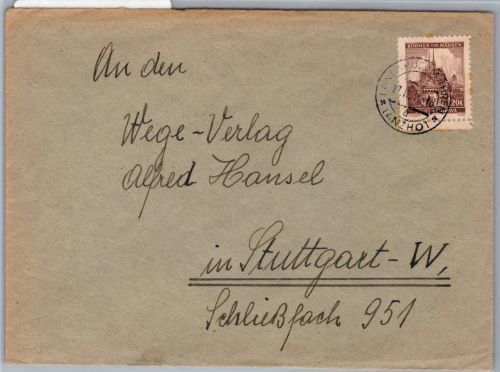 An den
Wege-Verlag
Alfred Hansel
in Stuttgart-W,
Schließfach 951
BÖHMEN UND MÄHREN
20K
LANZHOT